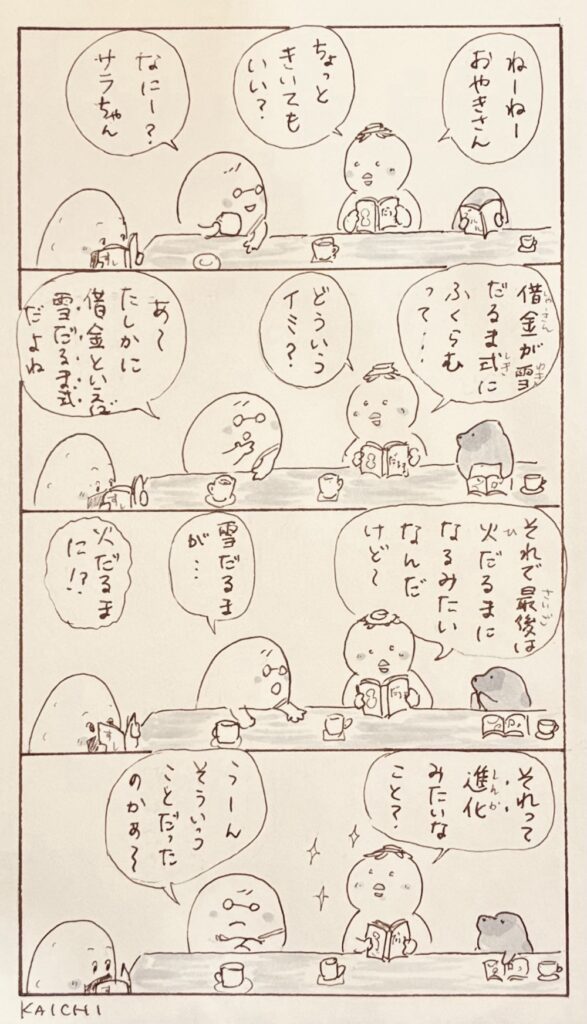 ねーねー
おやきさん
ちょっと
きいても
いい？
なにー？
サラちゃん
借金が雪
だるま式に
ふくらむ
って…
どういう
イミ？
あ〜
たしかに
借金といえば
雪だるま式
だよね
それで最後は
火だるまに
なるみたい
なんだ
けど〜
雪だるま
が…
火だるま
に!?
それって
進化
みたいな
こと？
うーん
そういう
ことだった
のかぁ〜
KAICHI